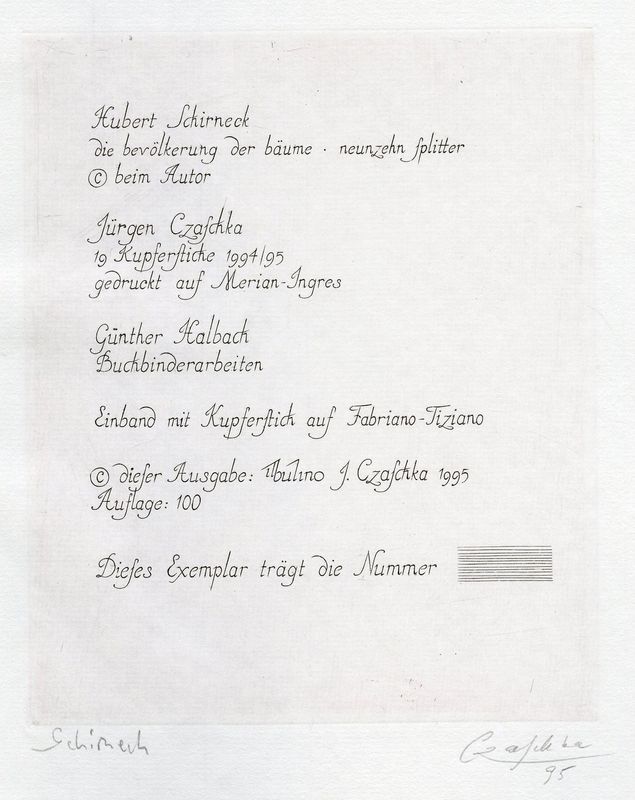 Hubert Schirneck
die bevölkerung der bäume · neunzehn splitter
© beim Autor
Jürgen Czaschka
19 Kupferstiche 1994/95
gedruckt auf Merian-Ingres
Günther Halbach
Buchbinderarbeiten
Einband mit Kupferstich auf Fabriano-Tiziano
© dieser Ausgabe: Ilbulino J. Czaschka 1995
Auflage: 100
Dieses Exemplar trägt die Nummer
Schirneck
Czaschka
95